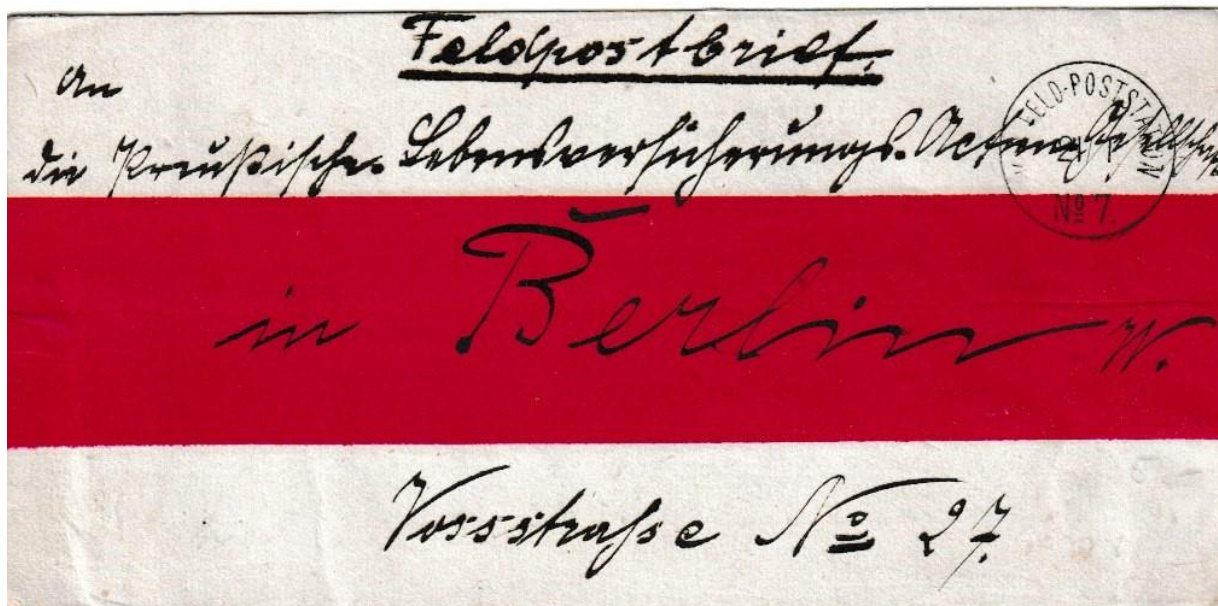 Feldpostbrief.
An
die Preußische Lebensversicherungs-Actien-Gesellschaft
FELD-POSTSTATION
No 7.
in Berlin W.
Vossstraße No 27.